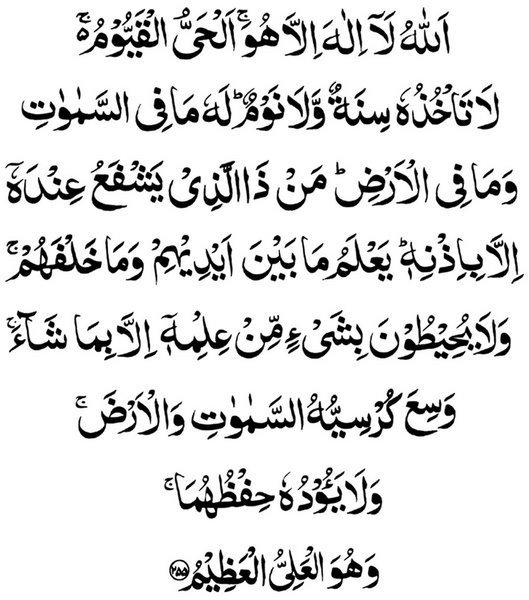 اَللّٰهُ لَاۤ اِلٰهَ اِلَّا هُوَ ۚ اَلْحَیُّ الْقَیُّوْمُ ۚ۬
لَا تَاْخُذُهٗ سِنَةٌ وَّلَا نَوْمٌ ؕ لَهٗ مَا فِی السَّمٰوٰتِ
وَمَا فِی الْاَرْضِ ؕ مَنْ ذَا الَّذِیْ یَشْفَعُ عِنْدَهٗۤ
اِلَّا بِاِذْنِهٖ ؕ یَعْلَمُ مَا بَیْنَ اَیْدِیْهِمْ وَمَا خَلْفَهُمْ ۚ
وَلَا یُحِیْطُوْنَ بِشَیْءٍ مِّنْ عِلْمِهٖۤ اِلَّا بِمَا شَآءَ ۚ
وَسِعَ كُرْسِیُّهُ السَّمٰوٰتِ وَالْاَرْضَ ۚ
وَلَا یَـُٔوْدُهٗ حِفْظُهُمَا ۚ
وَهُوَ الْعَلِیُّ الْعَظِیْمُ ﴿۲۵۵﴾